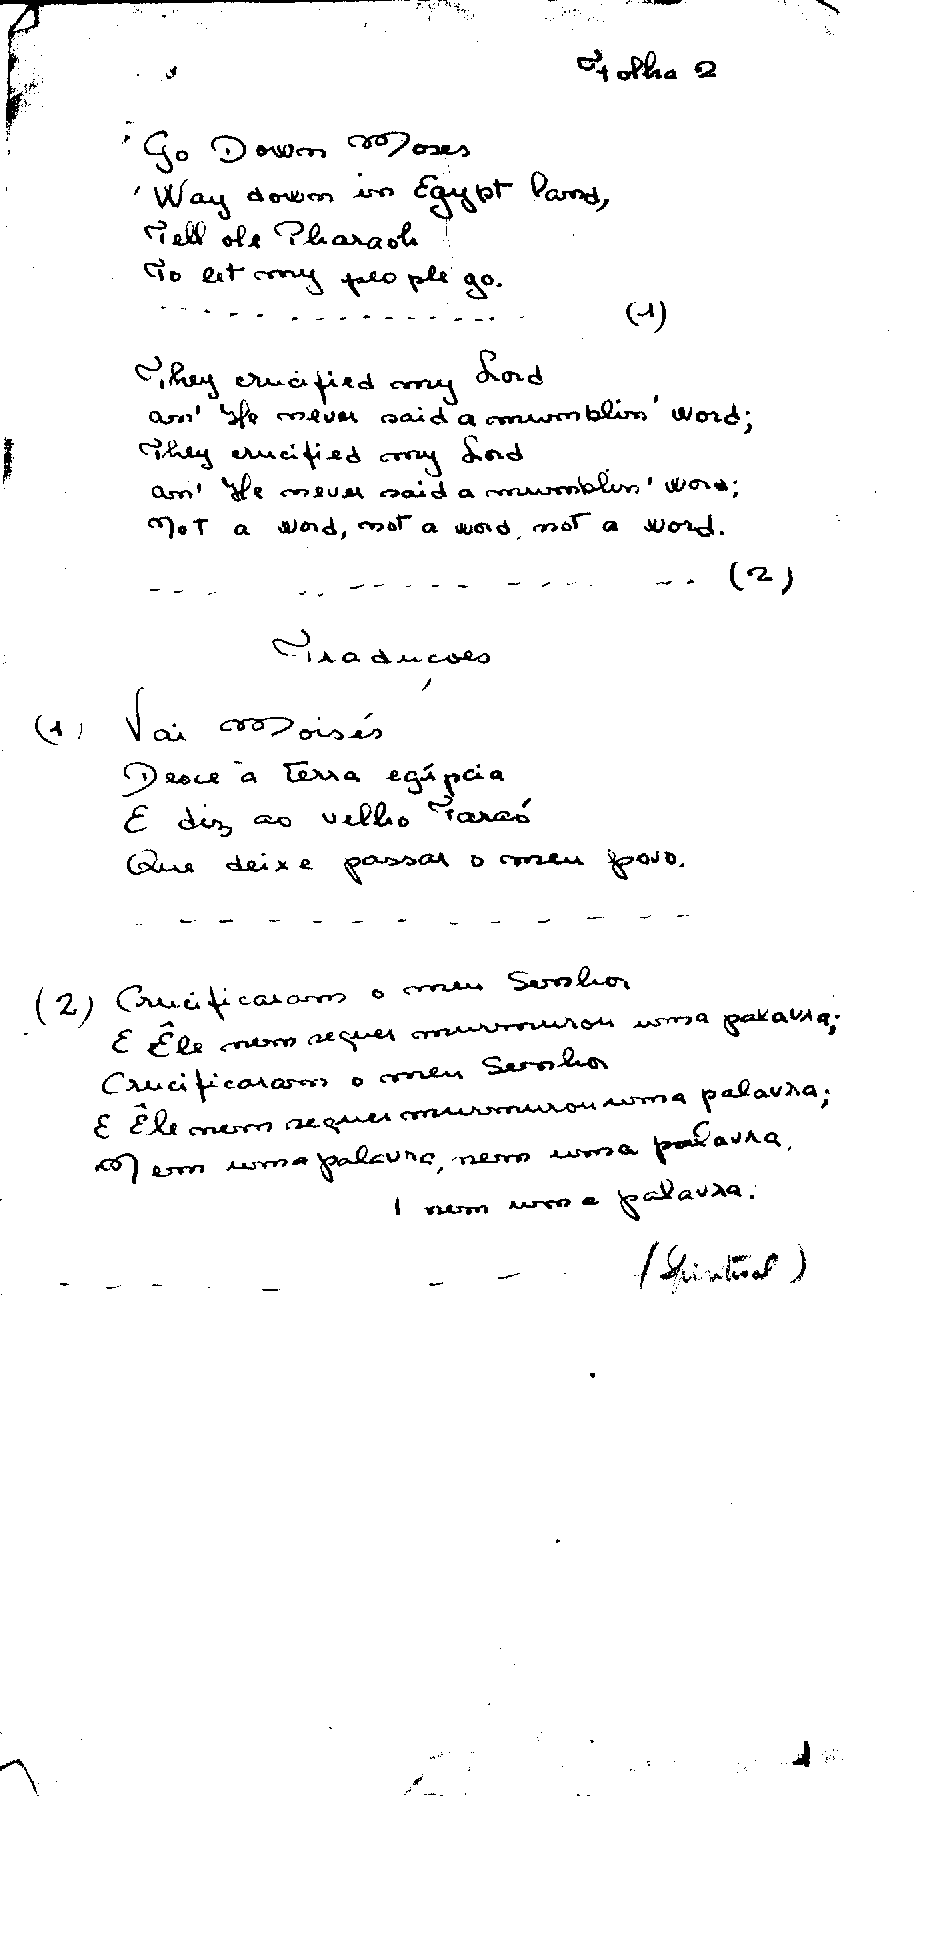 Folha 2
Go Down Moses
Way down in Egypt land,
Tell ole Pharaoh
To let my people go.
(1)
They crucified my Lord
an' He never said a mumblin' word;
They crucified my Lord
an' He never said a mumblin' word;
Not a word, not a word, not a word.
(2)
Traduções
(1) Vai Moisés
Desce à terra egípcia
E diz ao velho Faraó
Que deixe passar o meu povo.
(2) Crucificaram o meu Senhor
E Êle nem sequer murmurou uma palavra;
Crucificaram o meu Senhor
E Êle nem sequer murmurou uma palavra;
Nem uma palavra, nem uma palavra,
nem uma palavra.
(Spiritual)